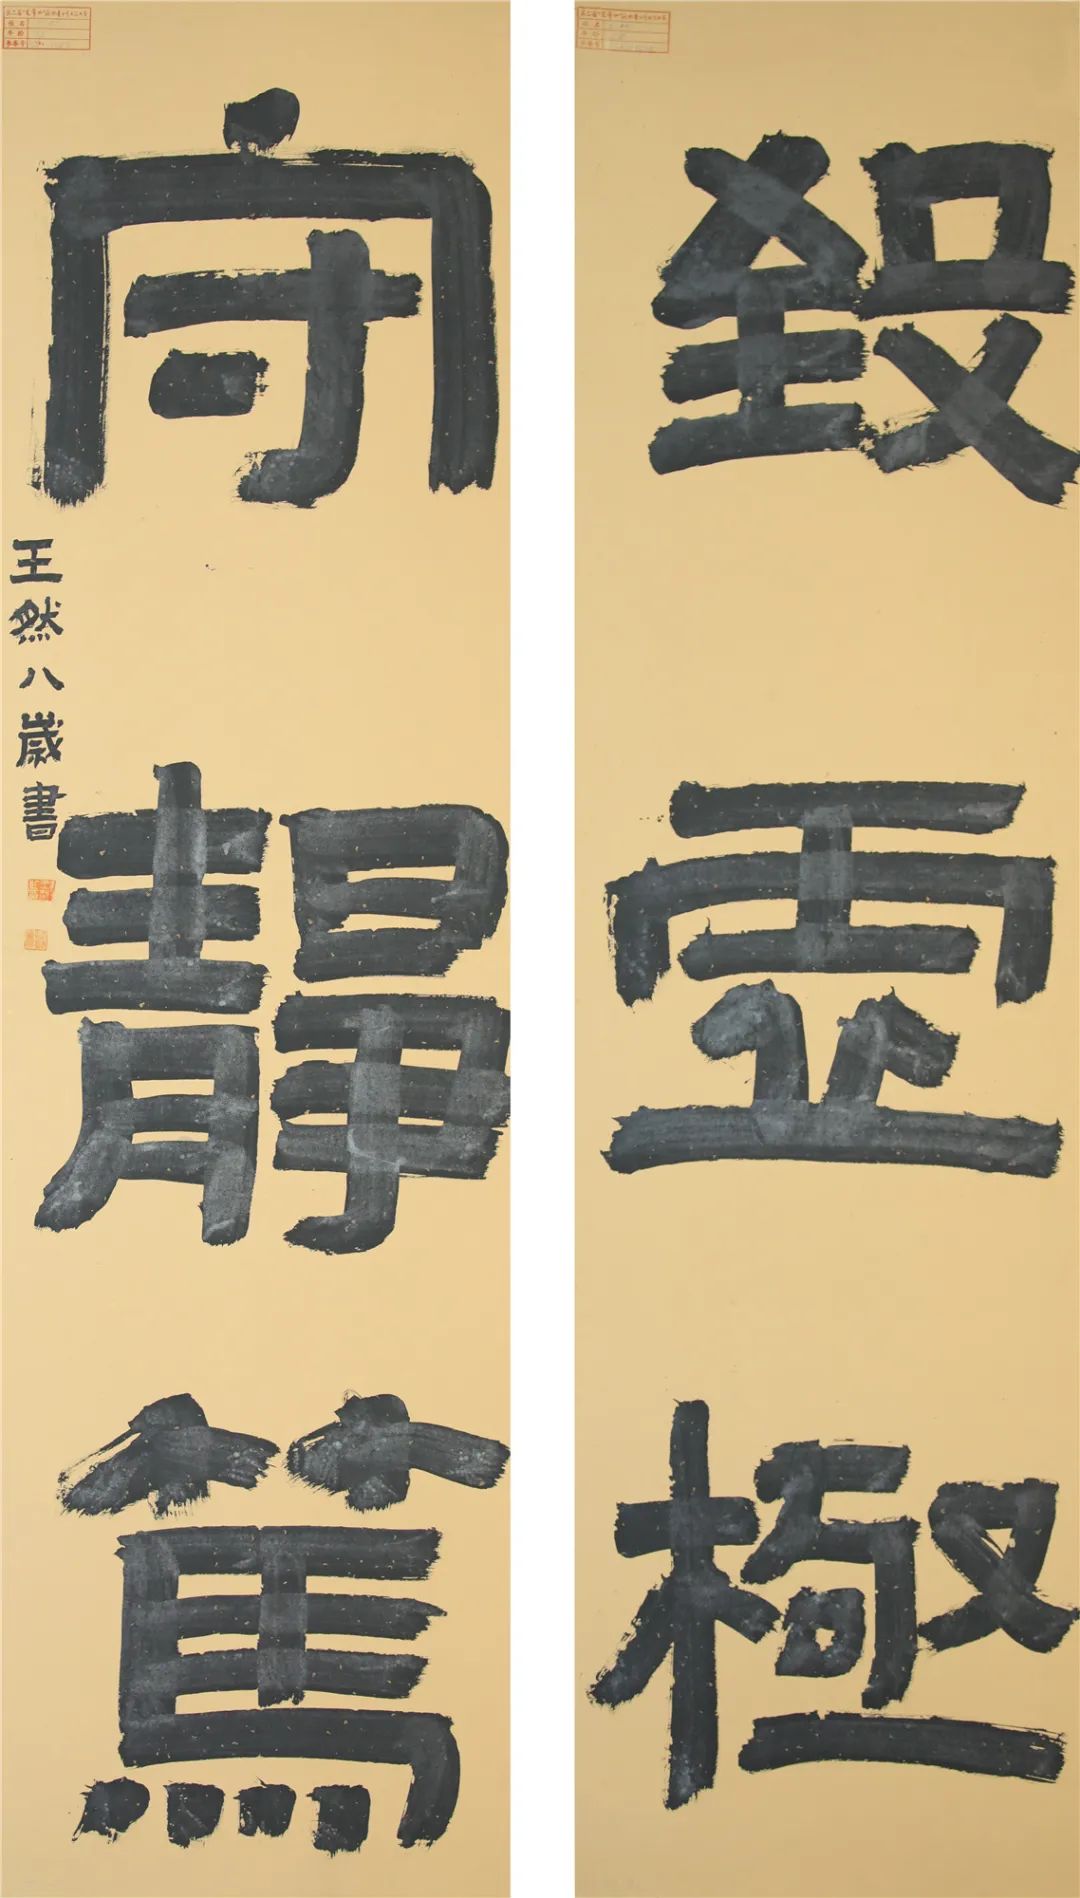 致虛極
守靜篤
王然八歲書